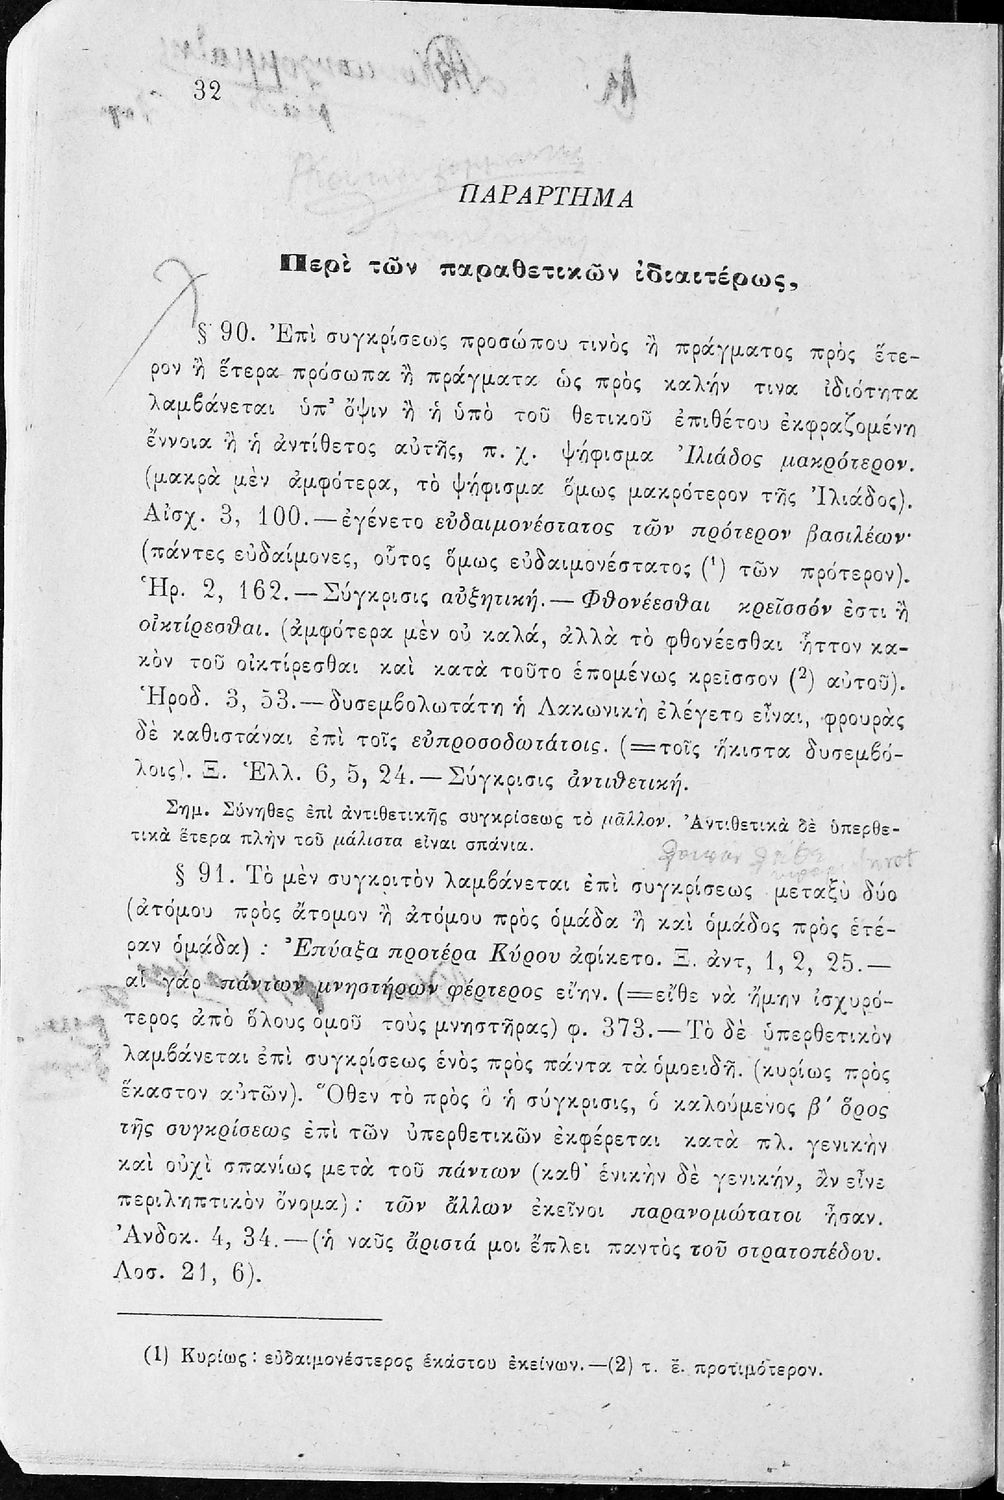 32
ΠΑΡΑΡΤΗΜΑ
Περὶ τῶν παραθετικῶν ἰδιαιτέρως,
§ 90. Ἐπὶ συγκρίσεως προσώπου τινὸς ἢ πράγματος πρὸς ἕτε-
ρον ἢ ἕτερα πρόσωπα ἢ πράγματα ὡς πρὸς καλήν τινα ἰδιότητα
λαμβάνεται ὑπ' ὄψιν ἢ ἡ ὑπὸ τοῦ θετικοῦ ἐπιθέτου ἐκφραζομένη
ἔννοια ἢ ἡ ἀντίθετος αὐτῆς, π. χ. ψήφισμα Ἰλιάδος μακρότερον.
(μακρὰ μὲν ἀμφότερα, τὸ ψήφισμα ὅμως μακρότερον τῆς Ἰλιάδος).
Αἰσχ. 3, 100.—ἐγένετο εὐδαιμονέστατος τῶν πρότερον βασιλέων·
(πάντες εὐδαίμονες, οὗτος ὅμως εὐδαιμονέστατος (¹) τῶν πρότερον).
Ἡρ. 2, 162.—Σύγκρισις αὐξητική.—Φθονέεσθαι κρεῖσσόν ἐστι ἢ
οἰκτίρεσθαι. (ἀμφότερα μὲν οὐ καλά, ἀλλὰ τὸ φθονέεσθαι ἧττον κα-
κὸν τοῦ οἰκτίρεσθαι καὶ κατὰ τοῦτο ἑπομένως κρεῖσσον (²) αὐτοῦ).
Ἡροδ. 3, 53.—δυσεμβολωτάτη ἡ Λακωνικὴ ἐλέγετο εἶναι, φρουρὰς
δὲ καθιστάναι ἐπὶ τοῖς εὐπροσοδωτάτοις. (=τοῖς ἥκιστα δυσεμβό-
λοις). Ξ. Ἑλλ. 6, 5, 24.—Σύγκρισις ἀντιθετική.
Σημ. Σύνηθες ἐπὶ ἀντιθετικῆς συγκρίσεως τὸ μᾶλλον. Ἀντιθετικὰ δὲ ὑπερθε-
τικὰ ἕτερα πλὴν τοῦ μάλιστα εἶναι σπάνια.
§ 91. Τὸ μὲν συγκριτὸν λαμβάνεται ἐπὶ συγκρίσεως μεταξὺ δύο
(ἀτόμου πρὸς ἄτομον ἢ ἀτόμου πρὸς ὁμάδα ἢ καὶ ὁμάδος πρὸς ἑτέ-
ραν ὁμάδα) : Ἐπύαξα προτέρα Κύρου ἀφίκετο. Ξ. ἀντ, 1, 2, 25.—
αἲ γάρ πάντων μνηστήρων φέρτερος εἴην. (=εἴθε νὰ ἤμην ἰσχυρό-
τερος ἀπὸ ὅλους ὁμοῦ τοὺς μνηστῆρας) φ. 373.—Τὸ δὲ ὑπερθετικὸν
λαμβάνεται ἐπὶ συγκρίσεως ἑνὸς πρὸς πάντα τὰ ὁμοειδῆ. (κυρίως πρὸς
ἕκαστον αὐτῶν). Ὅθεν τὸ πρὸς ὃ ἡ σύγκρισις, ὁ καλούμενος β' ὅρος
τῆς συγκρίσεως ἐπὶ τῶν ὑπερθετικῶν ἐκφέρεται κατὰ πλ. γενικὴν
καὶ οὐχὶ σπανίως μετὰ τοῦ πάντων (καθ' ἑνικὴν δὲ γενικήν, ἂν εἶνε
περιληπτικὸν ὄνομα) : τῶν ἄλλων ἐκεῖνοι παρανομώτατοι ἦσαν.
Ἀνδοκ. 4, 34.—(ἡ ναῦς ἄριστά μοι ἔπλει παντὸς τοῦ στρατοπέδου.
Λοσ. 21, 6).
(1) Κυρίως : εὐδαιμονέστερος ἑκάστου ἐκείνων.—(2) τ. ἔ. προτιμότερον.